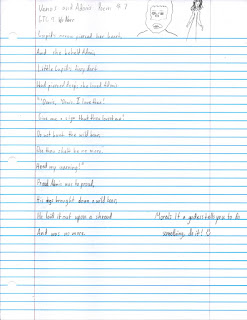 Venus and Adonis Poem # 7
Cupid's arrow pierced her heart,
And she beheld Adonis.
Little Cupid's fiery dart
Had pierced deep; she loved Adonis.
"Dearie, Venus I love thee!
Give me a sign that thou lovest me!
Do not hunt the wild boar,
Or thou shalt be no more.
Heed my warning!"
Proud Adonis was so proud,
His dogs brought down a wild boar.
He laid it out upon a shroud
And was no more.
Moral: If a goddess tells you to do
something, do it! ☺